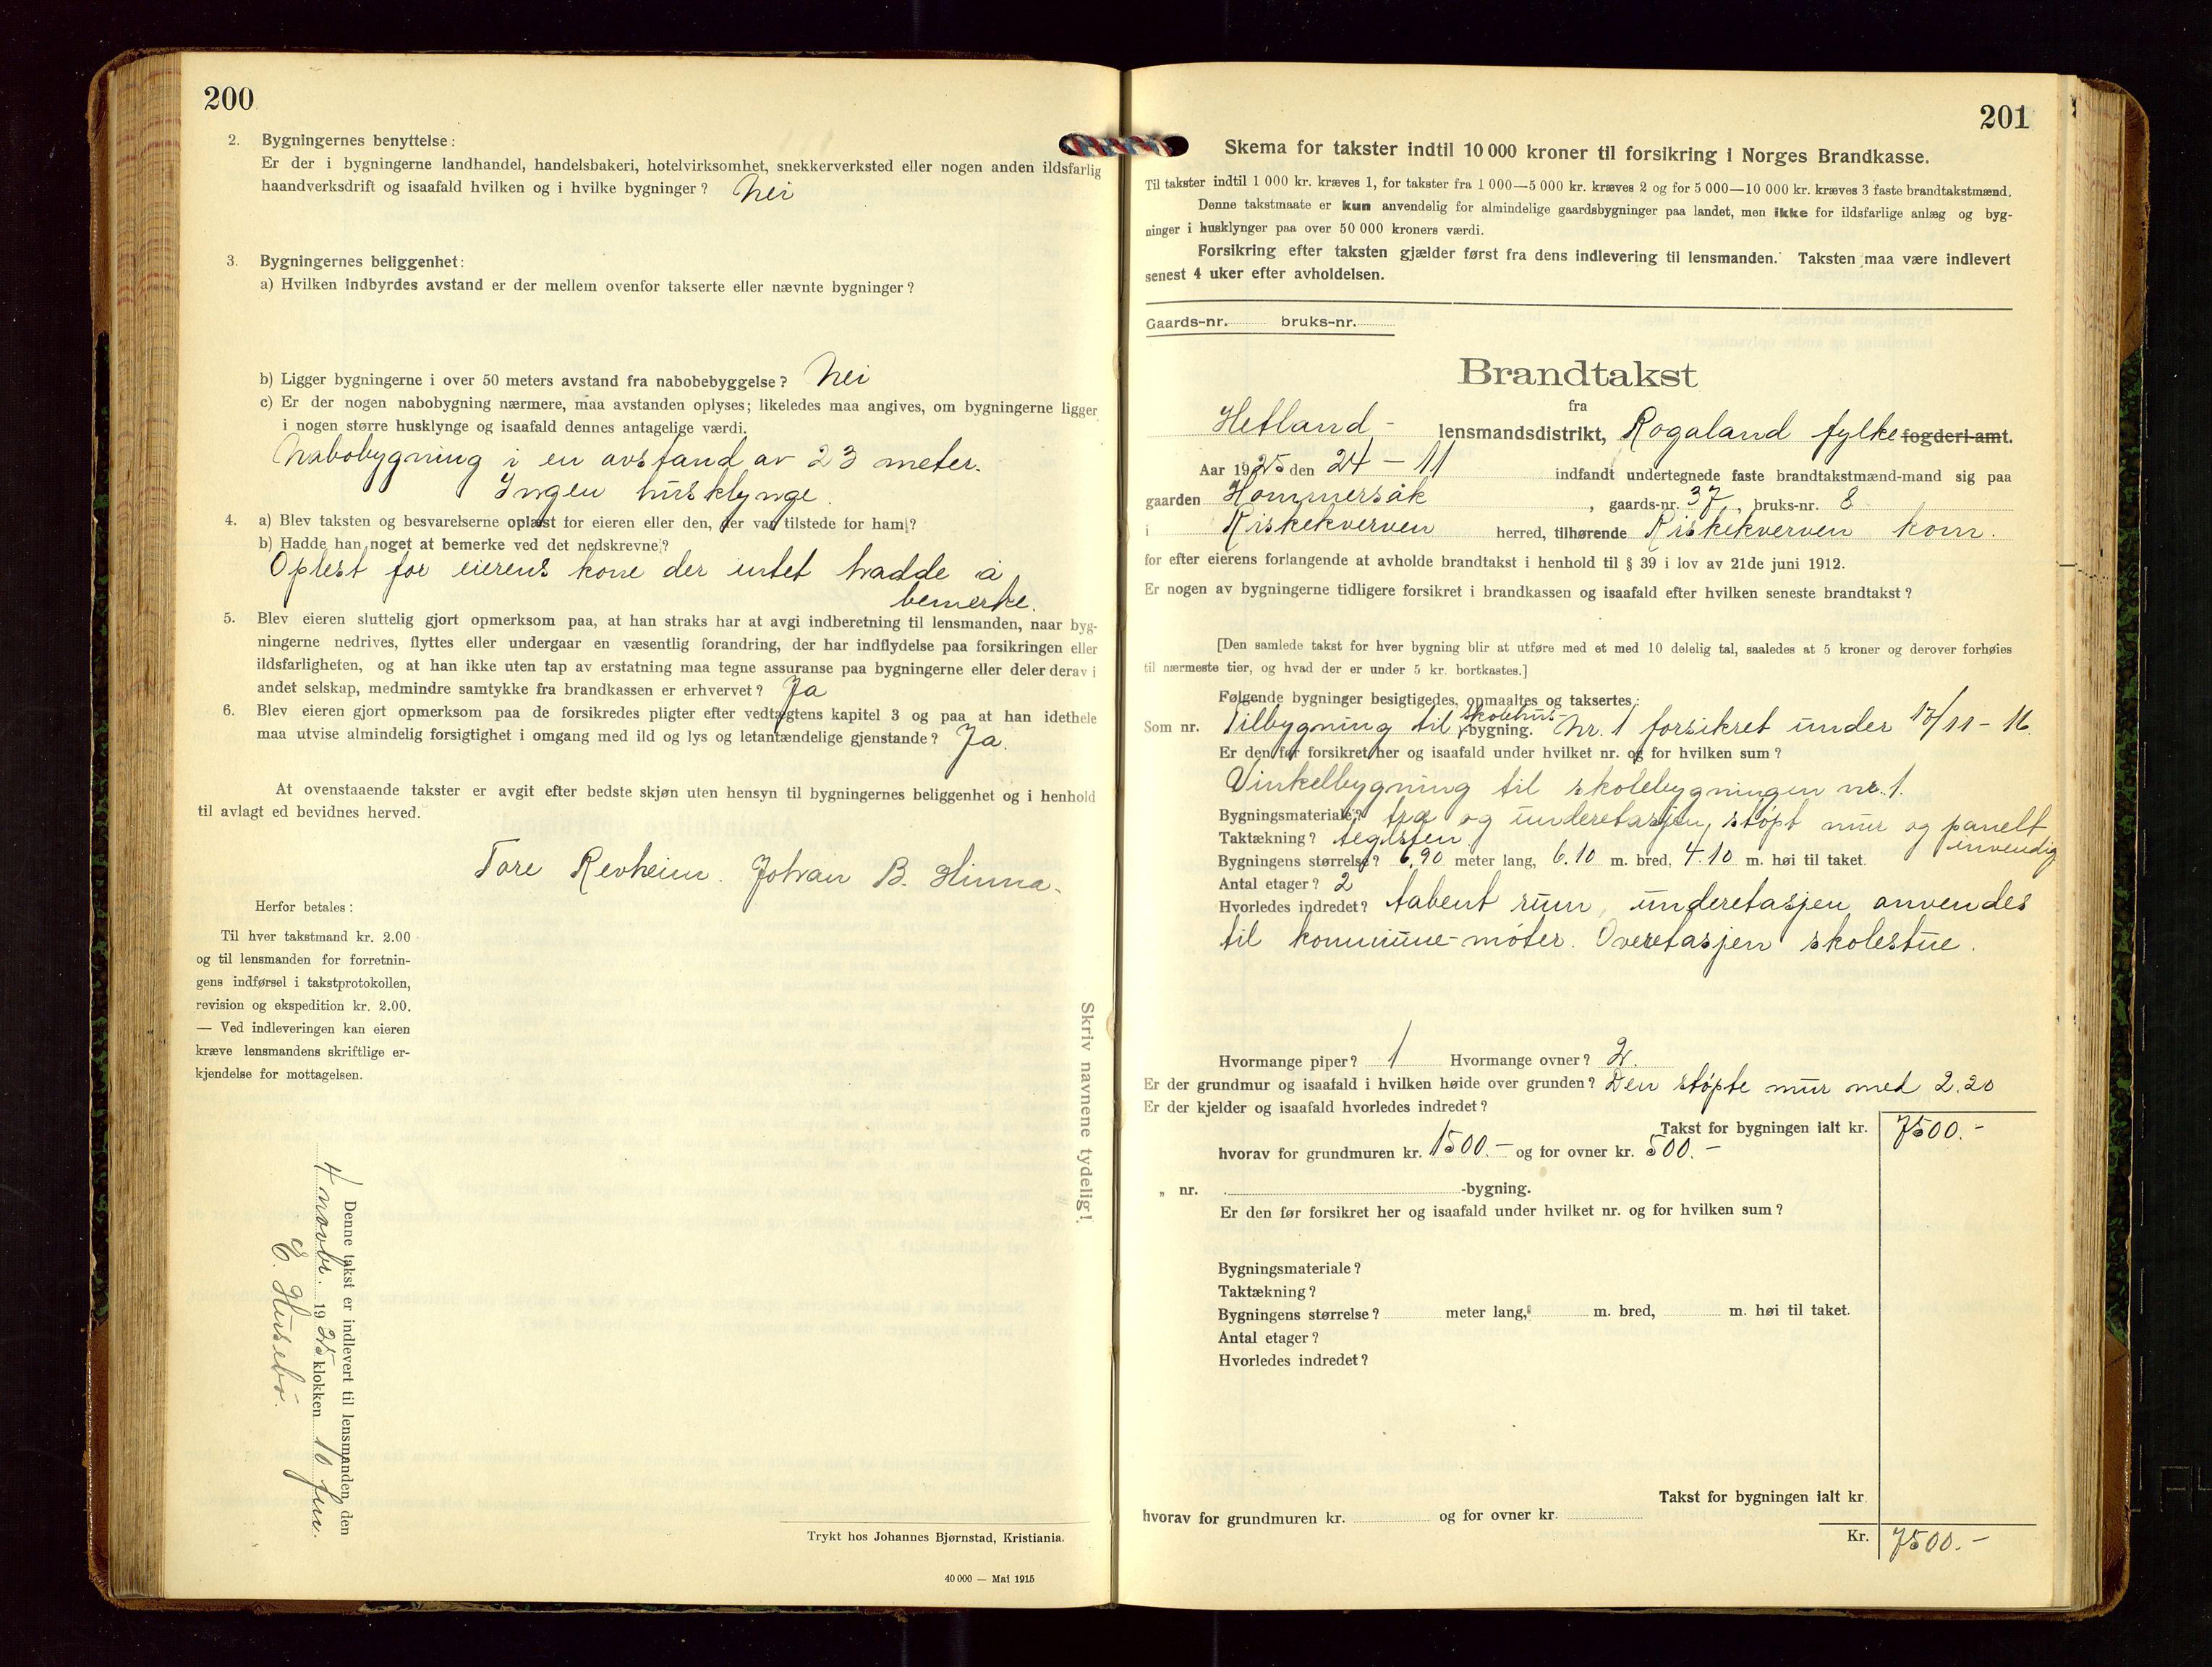 200
2. Bygningernes benyttelse:
Er der i bygningerne landhandel, handelsbakeri, hotelvirksomhet, snekkerverksted eller nogen anden ildsfarlig
haandverksdrift og isaafald hvilken og i hvilke bygninger? Nei
3. Bygningernes beliggenhet:
a) Hvilken indbyrdes avstand er der mellem ovenfor takserte eller nævnte bygninger?
b) Ligger bygningerne i over 50 meters avstand fra nabobebyggelse? Nei
c) Er der nogen nabobygning nærmere, maa avstanden oplyses; likeledes maa angives, om bygningerne ligger
i nogen større husklynge og isaafald dennes antagelige værdi.
Nabobygning i en avstand av 23 meter.
Ingen husklynge.
4. a) Blev taksten og besvarelserne oplæst for eieren eller den, der var tilstede for ham?
b) Hadde han noget at bemerke ved det nedskrevne?
Oplest for eierens kone der intet hadde å
bemerke.
5. Blev eieren sluttelig gjort opmerksom paa, at han straks har at avgi indberetning til lensmanden, naar byg-
ningerne nedrives, flyttes eller undergaar en væsentlig forandring, der har indflydelse paa forsikringen eller
ildsfarligheten, og at han ikke uten tap av erstatning maa tegne assuranse paa bygningerne eller deler derav i
andet selskap, medmindre samtykke fra brandkassen er erhvervet? Ja
6. Blev eieren gjort opmerksom paa de forsikredes pligter efter vedtægtens kapitel 3 og paa at han idethele
maa utvise almindelig forsigtighet i omgang med ild og lys og letantændelige gjenstande? Ja.
At ovenstaaende takster er avgit efter bedste skjøn uten hensyn til bygningernes beliggenhet og i henhold
til avlagt ed bevidnes herved.
Tore Revheim. Johan B. Hinna.
Herfor betales:
Til hver takstmand kr. 2.00
og til lensmanden for forretnin-
gens indførsel i takstprotokollen,
revision og ekspedition kr. 2.00.
— Ved indleveringen kan eieren
kræve lensmandens skriftlige er-
kjendelse for mottagelsen.
Skriv navnene tydelig!
Denne takst er indlevert til lensmanden den
4 novbr. 1925 klokken 10 fm.
E. Husebø.
Trykt hos Johannes Bjørnstad, Kristiania.
40 000 — Mai 1915
201
Skema for takster indtil 10 000 kroner til forsikring i Norges Brandkasse.
Til takster indtil 1 000 kr. kræves 1, for takster fra 1 000—5 000 kr. kræves 2 og for 5 000—10 000 kr. kræves 3 faste brandtakstmænd.
Denne takstmaate er kun anvendelig for almindelige gaardsbygninger paa landet, men ikke for ildsfarlige anlæg og byg-
ninger i husklynger paa over 50 000 kroners værdi.
Forsikring efter taksten gjælder først fra dens indlevering til lensmanden. Taksten maa være indlevert
senest 4 uker efter avholdelsen.
Gaards-nr. bruks-nr.
Brandtakst
fra
Hetland - lensmandsdistrikt, Rogaland fylke fogderi-amt.
Aar 1925 den 24 - 11 indfandt undertegnede faste brandtakstmænd-mand sig paa
gaarden Hommersåk, gaards-nr. 37, bruks-nr. 8
i Riskekverven herred, tilhørende Riskekverven kom.
for efter eierens forlangende at avholde brandtakst i henhold til § 39 i lov av 21de juni 1912.
Er nogen av bygningerne tidligere forsikret i brandkassen og isaafald efter hvilken seneste brandtakst?
[Den samlede takst for hver bygning blir at utføre med et med 10 delelig tal, saaledes at 5 kroner og derover forhøies
til nærmeste tier, og hvad der er under 5 kr. bortkastes.]
Følgende bygninger besigtigedes, opmaaltes og taksertes:
Som nr. Tilbygning til skolehus- bygning. Nr. 1 forsikret under 17/11 - 16.
Er den før forsikret her og isaafald under hvilket nr. og for hvilken sum?
Vinkelbygning til skolebygningen nr. 1.
Bygningsmateriale? træ og underetasjen, støpt mur og panelt
invendig
Taktækning? teglsten.
Bygningens størrelse? 6.90 meter lang, 6.10 m. bred, 4.10 m. høi til taket.
Antal etager? 2
Hvorledes indredet? Aabent rum, underetasjen anvendes
til kommune-møter. Overetasjen skolestue.
Hvormange piper? 1 Hvormange ovner? 2.
Er der grundmur og isaafald i hvilken høide over grunden? Den støpte mur med 2.20
Er der kjelder og isaafald hvorledes indredet?
Takst for bygningen ialt kr. 7500.-
hvorav for grundmuren kr. 1500.- og for ovner kr. 500.-
„ nr. -bygning.
Er den før forsikret her og isaafald under hvilket nr. og for hvilken sum?
Bygningsmateriale?
Taktækning?
Bygningens størrelse? meter lang, m. bred, m. høi til taket.
Antal etager?
Hvorledes indredet?
Takst for bygningen ialt kr
hvorav for grundmuren kr. og for ovner kr.
Kr. 7500.-